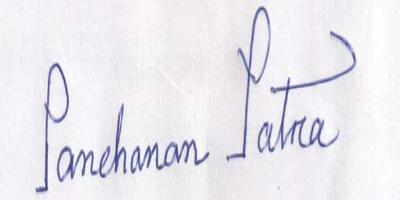 Panchanan Patra